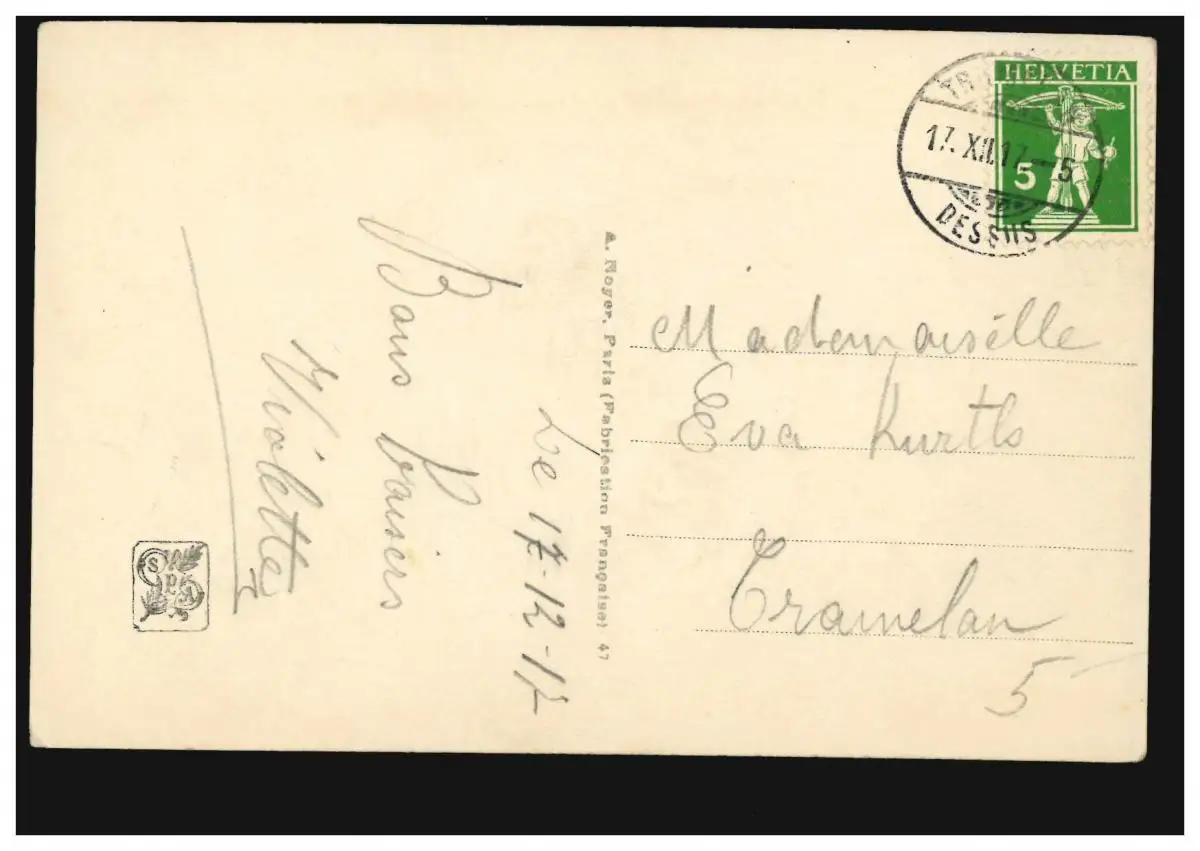 HELVETIA
5
17.XII.17.–5
DESSUS
Le 17-12-17
Bons baisers
Violette
A. Noyer, Paris (Fabrication Française) 47
Mademoiselle
Eva Kurtls
Tramelan
5
SPA